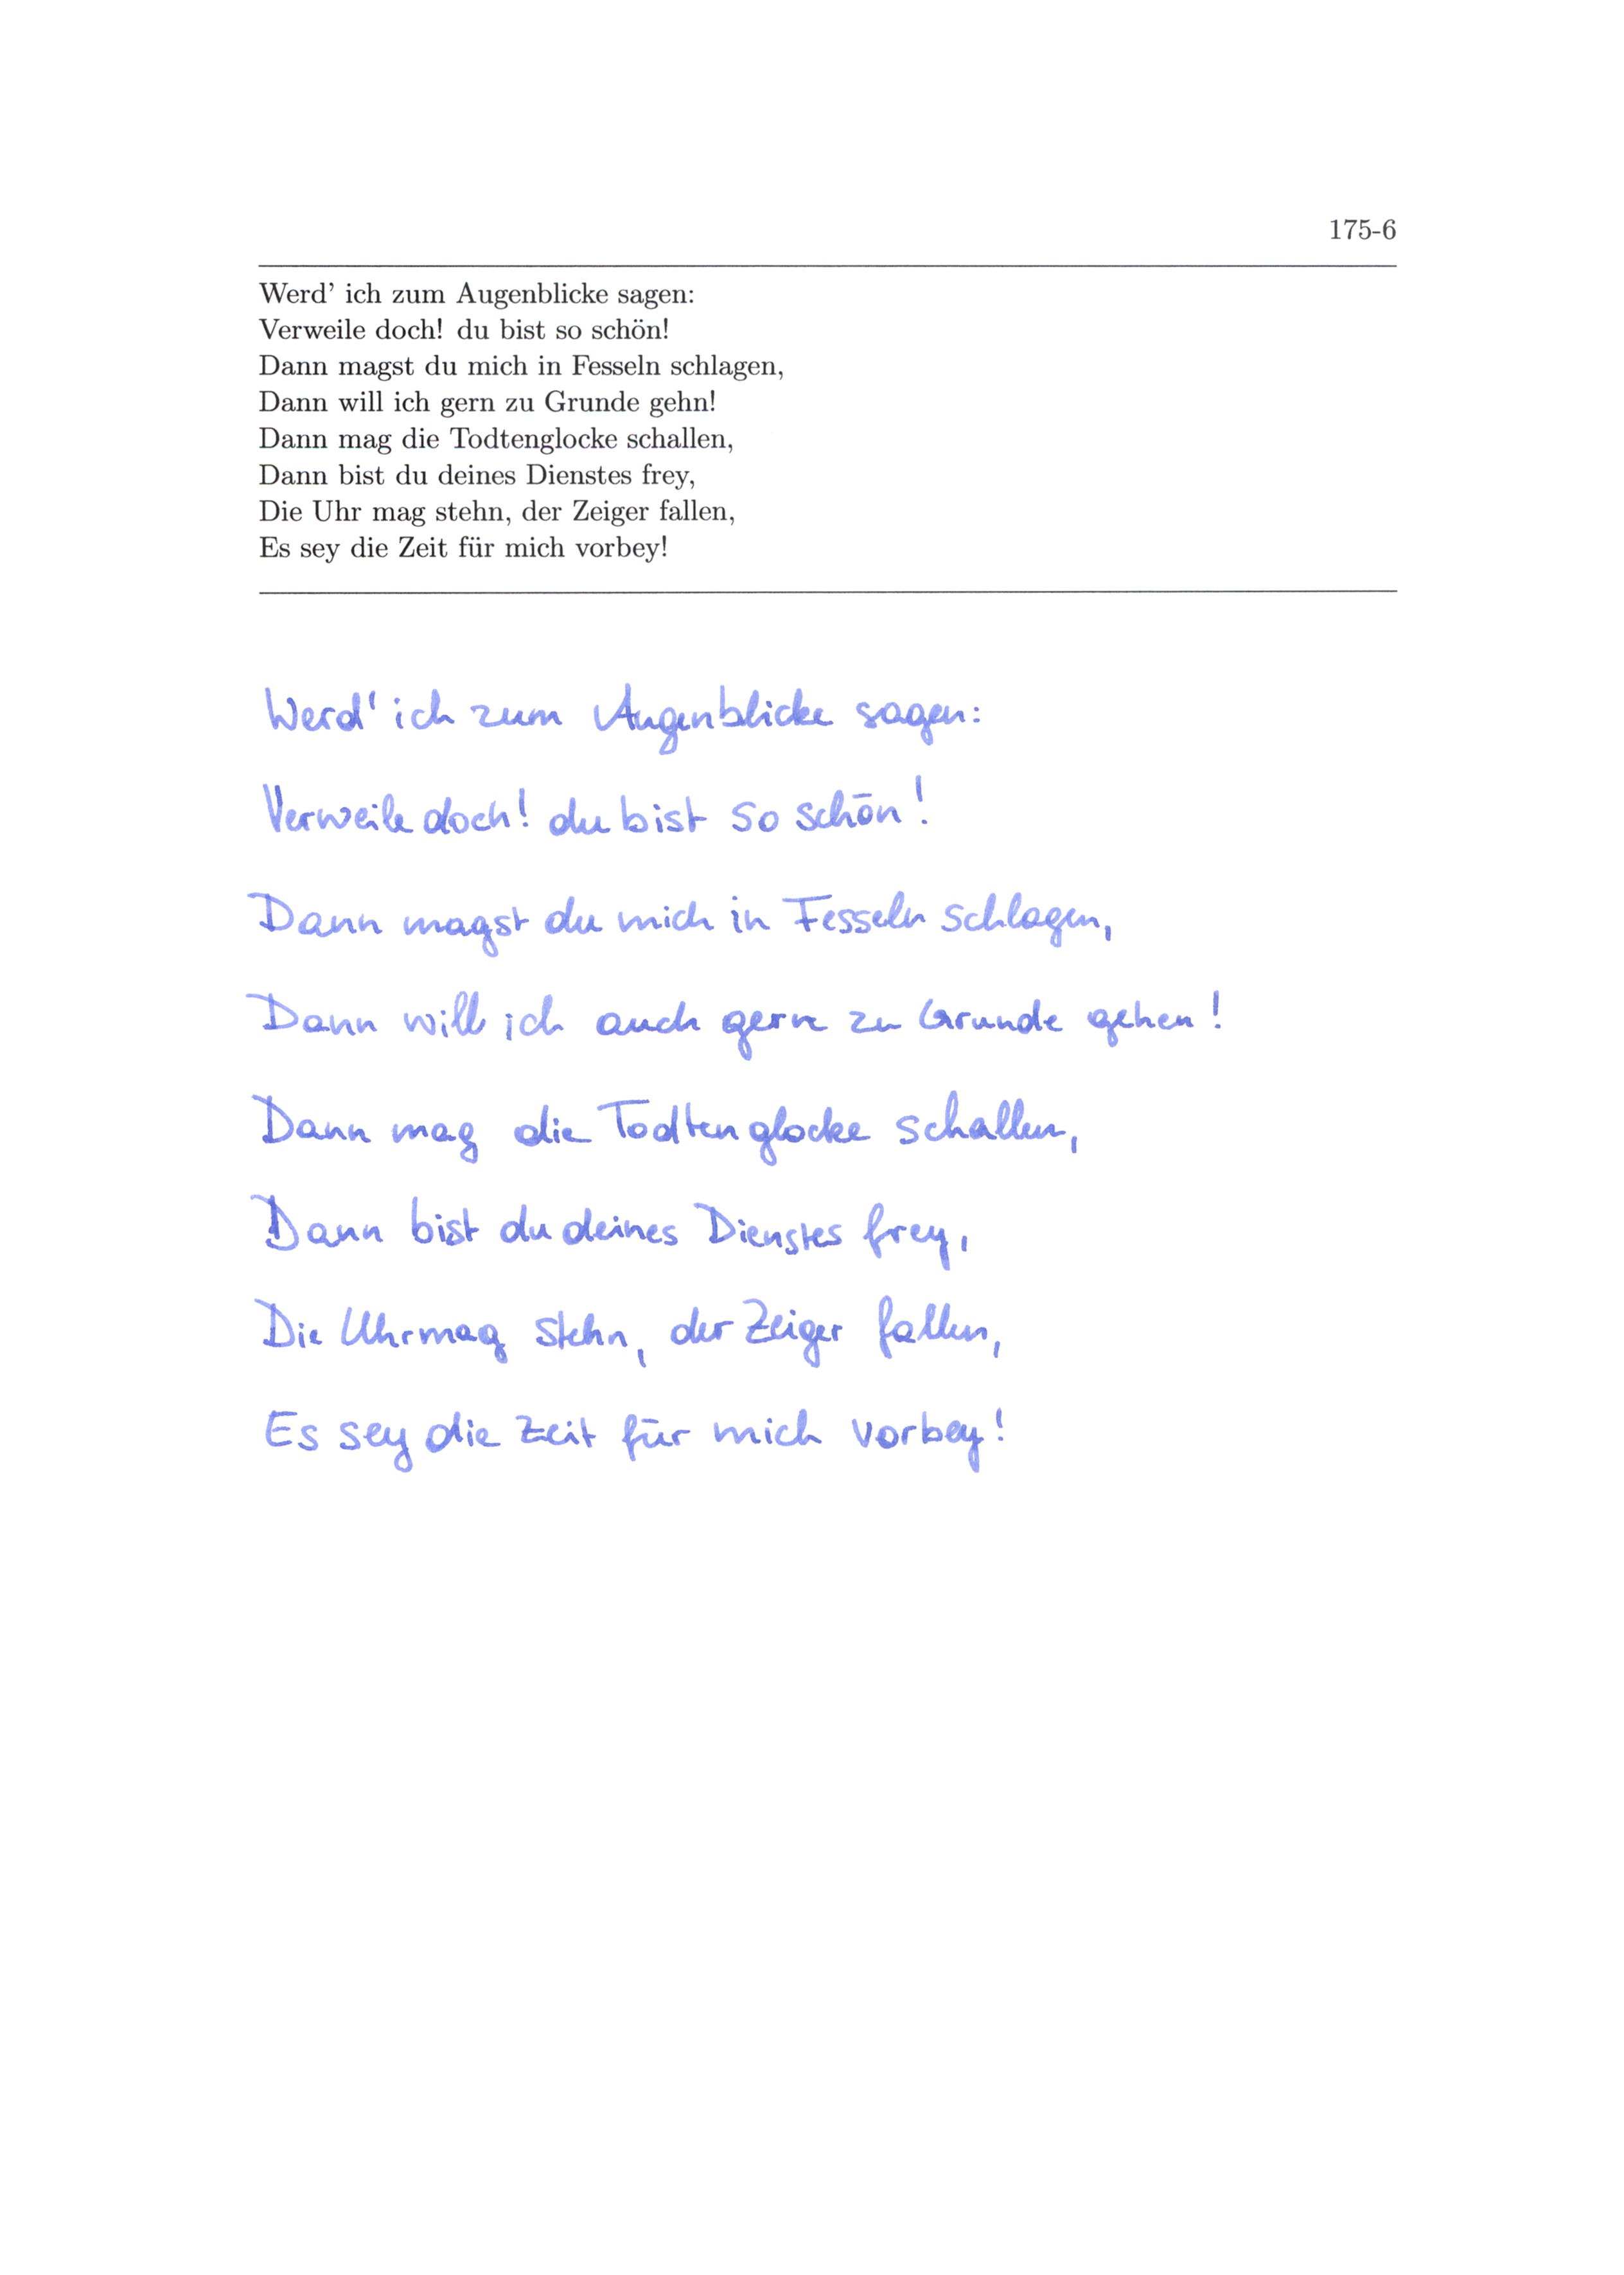 175-6
Werd' ich zum Augenblicke sagen:
Verweile doch! du bist so schön!
Dann magst du mich in Fesseln schlagen,
Dann will ich gern zu Grunde gehn!
Dann mag die Todtenglocke schallen,
Dann bist du deines Dienstes frey,
Die Uhr mag stehn, der Zeiger fallen,
Es sey die Zeit für mich vorbey!
Werd' ich zum Augenblicke sagen:
Verweile doch! du bist so schön!
Dann magst du mich in Fesseln schlagen,
Dann will ich auch gern zu Grunde gehen!
Dann mag die Todtenglocke schallen,
Dann bist du deines Dienstes frey,
Die Uhr mag stehn, der Zeiger fallen,
Es sey die Zeit für mich vorbey!